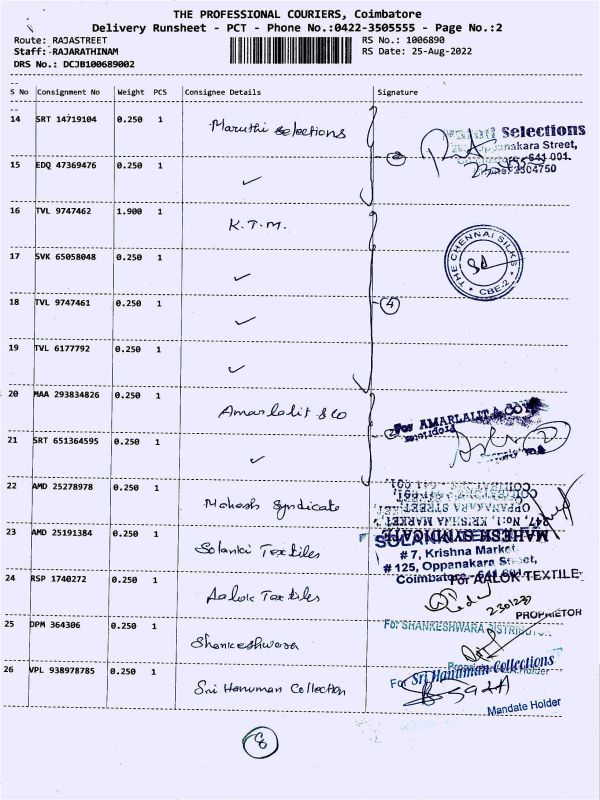 THE PROFESSIONAL COURIERS, Coimbatore
Delivery Runsheet - PCT - Phone No.:0422-3505555 - Page No.:2
Route: RAJASTREET RS No.: 1006890
Staff: RAJARATHINAM RS Date: 25-Aug-2022
DRS No.: DCJB100689002
S No Consignment No Weight PCS Consignee Details Signature
14 SRT 14719104 0.250 1 Maruthi Selections
Selections
Oppanakara Street,
641 001.
2304750
15 EDQ 47369476 0.250 1 ✓
16 TVL 9747462 1.900 1 K.T.M.
17 SVK 65058048 0.250 1 ✓
THE CHENNAI SILKS
CBE-2
18 TVL 9747461 0.250 1 ✓ 4
19 TVL 6177792 0.250 1 ✓
20 MAA 293834826 0.250 1 Amarlalit & Co
For AMARLALIT & CO
Proprietor
21 SRT 651364595 0.250 1 ✓
22 AMD 25278978 0.250 1 Mahesh Syndicate
MAHESH SYNDICATE
247, No:1, KRISHNA MARKET,
OPPANAKARA STREET,
23 AMD 25191384 0.250 1 Solanki Textiles
SOLANKI
# 7, Krishna Market,
# 125, Oppanakara Street,
Coimbatore - 641 001
24 RSP 1740272 0.250 1 Aalok Textiles
For AALOK TEXTILE
PROPRIETOR
25 DPM 364306 0.250 1 Shankeshwara
For SHANKESHWARA
26 VPL 938978785 0.250 1 Sri Hanuman Collection
For Sri Hanuman Collections
Mandate Holder
8